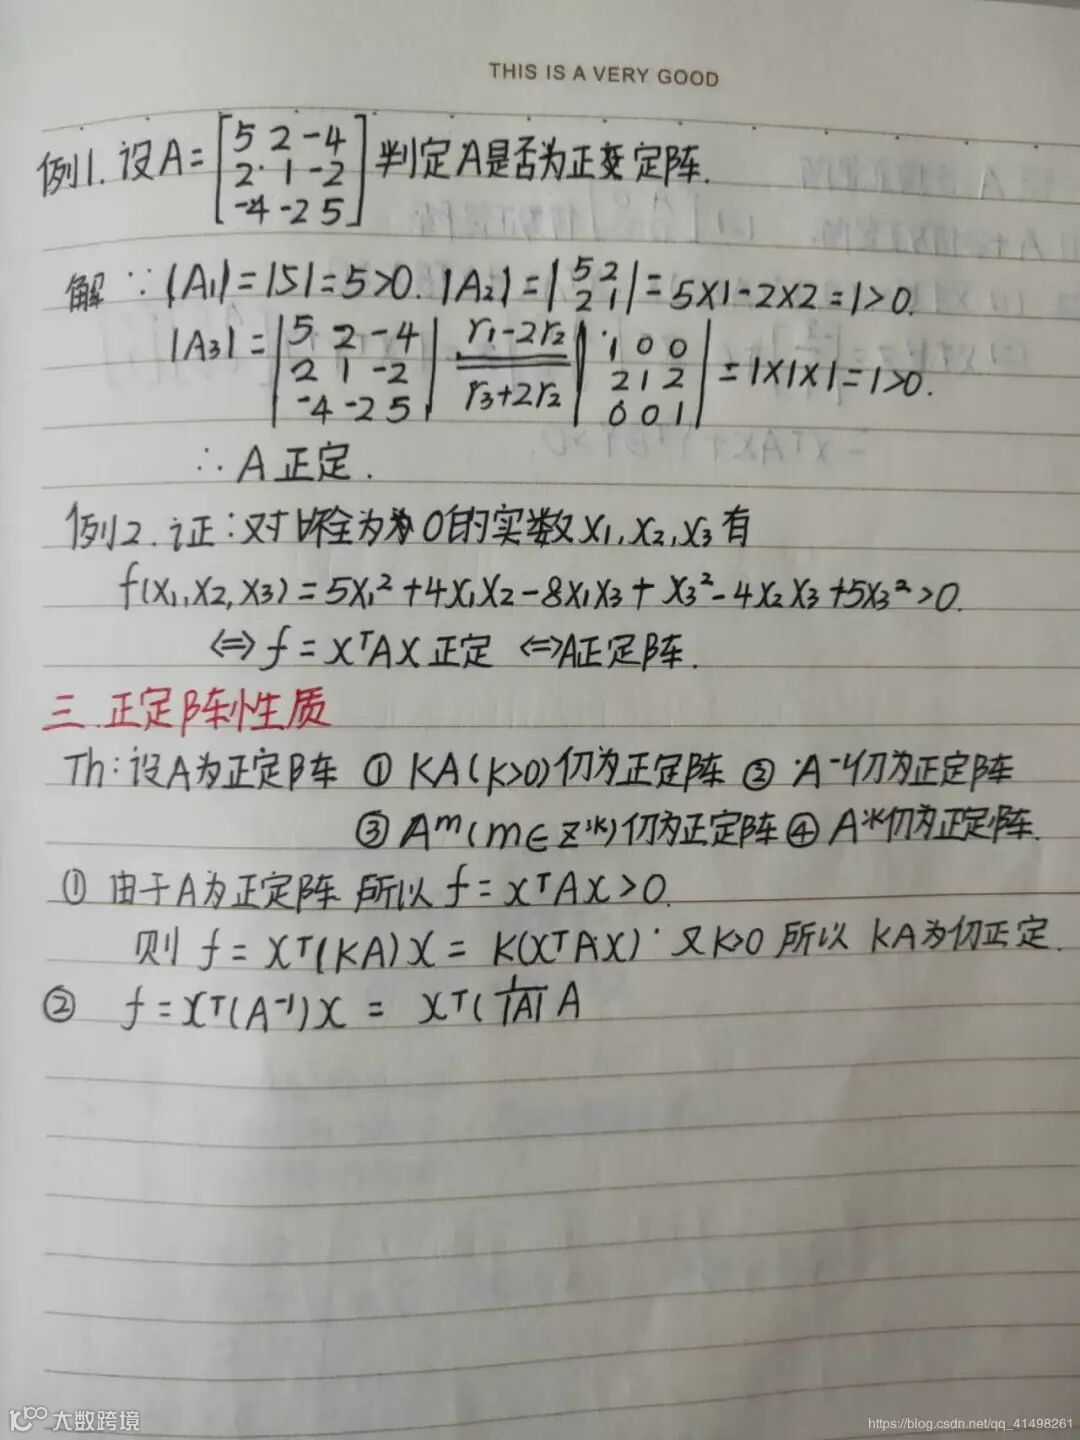 THIS IS A VERY GOOD
例1. 设A=[5 2 -4; 2 1 -2; -4 -2 5] 判定A是否为正定阵.
解 ∵ |A₁|=|5|=5>0. |A₂|=|5 2; 2 1|=5×1-2×2=1>0.
|A₃|=|5 2 -4; 2 1 -2; -4 -2 5| r₁-2r₂ r₃+2r₂ |1 0 0; 2 1 2; 0 0 1|=1×1×1=1>0.
∴ A 正定.
例2. 证:对 全为 0的实数 x₁,x₂,x₃有
f(x₁,x₂,x₃)=5x₁²+4x₁x₂-8x₁x₃+x₃²-4x₂x₃+5x₃²>0.
⇔ f=xᵀAx 正定 ⇔A正定阵.
三.正定阵性质
Th:设A为正定阵 ① KA(K>0)仍为正定阵 ② A⁻¹仍为正定阵
③ Aᵐ(m∈Z*)仍为正定阵 ④ A*仍为正定阵.
① 由于A为正定阵 所以 f=xᵀAx>0.
则 f=xᵀ(KA)x=K(xᵀAx) 又K>0 所以 KA为仍正定.
② f=xᵀ(A⁻¹)x=xᵀ(1/|A| A
大数跨境
https://blog.csdn.net/qq_41498261